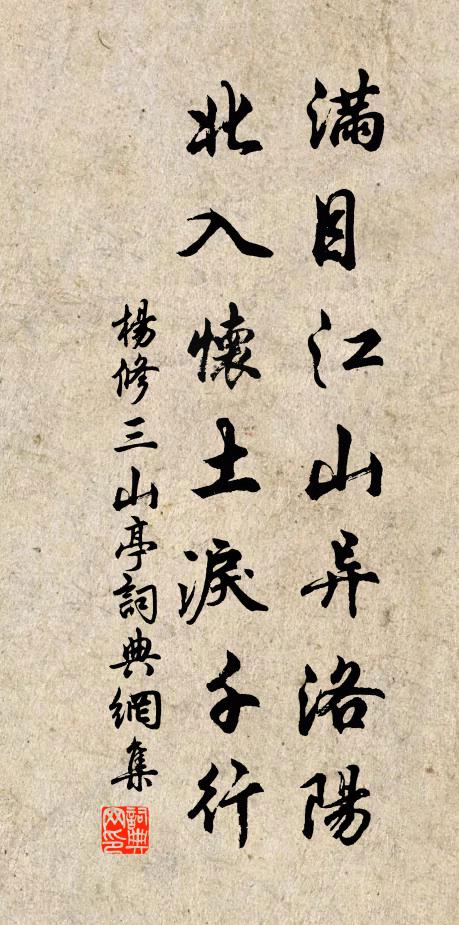 滿目江山异洛陽
北入懷土淚千行
楊修三山亭詞典網集
詞典網印